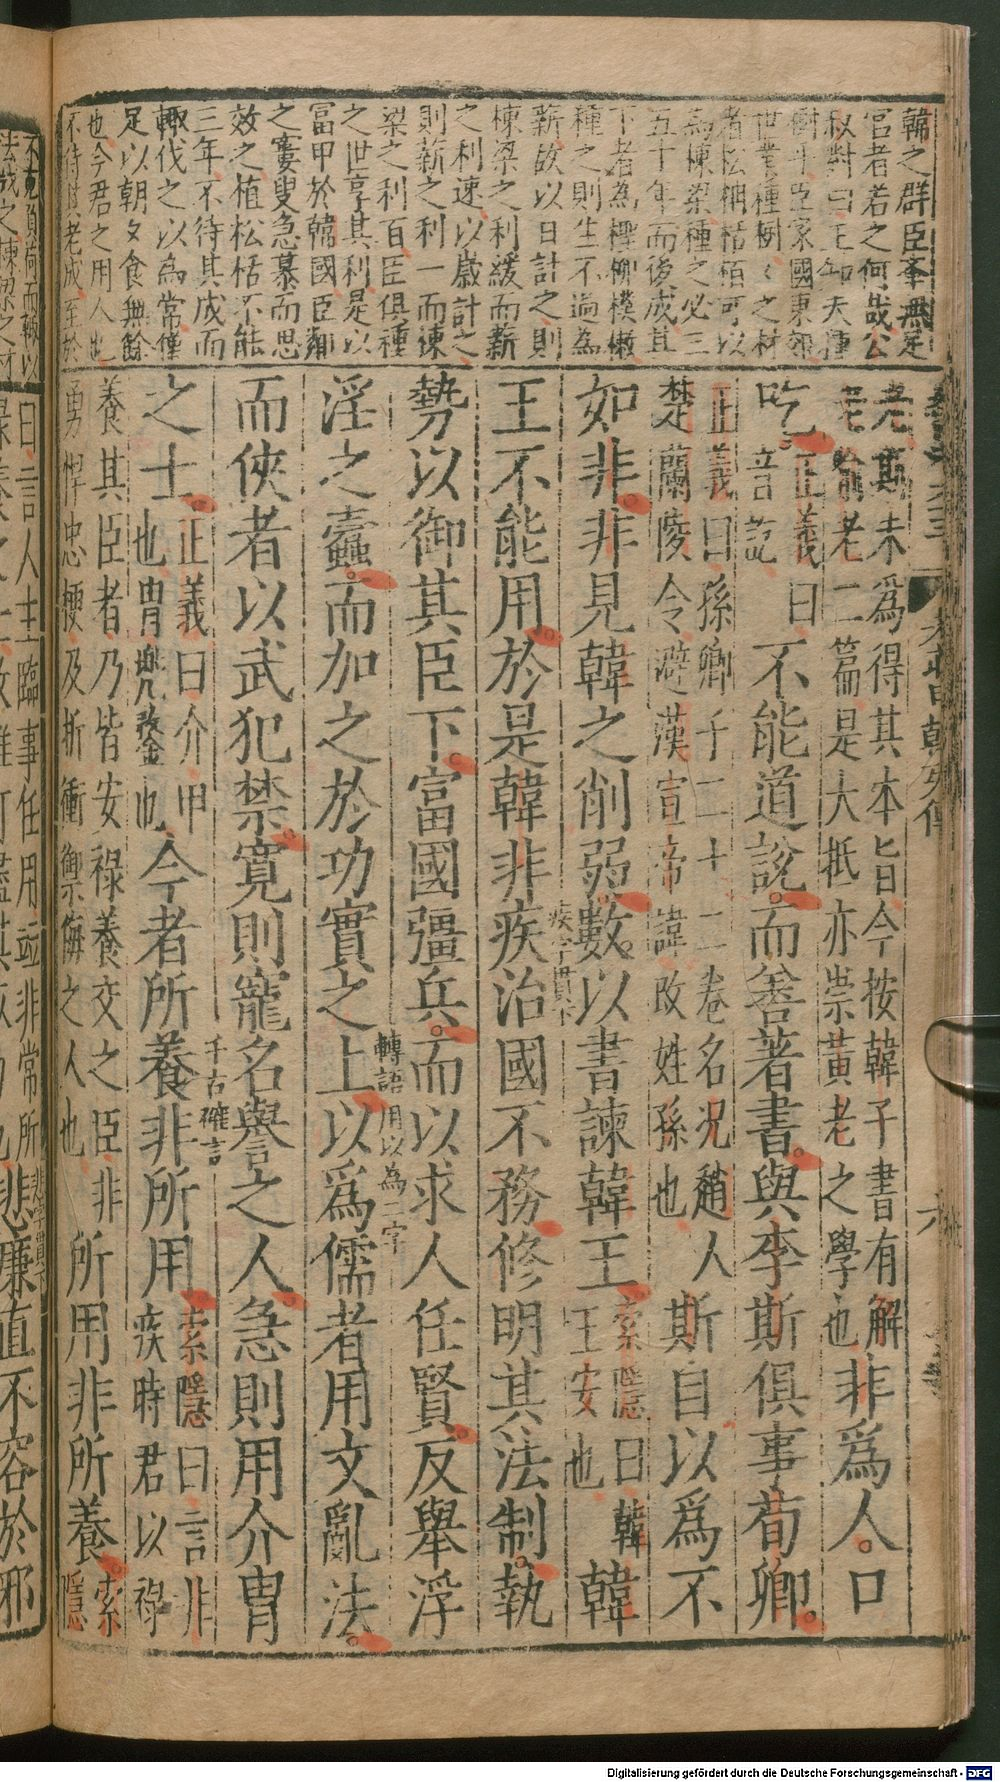 韓之群臣率無足
官者若之何哉公
叔對曰王知夫種
樹乎臣家國東郊
世業種樹樹之材
者松栢栝栢可以
為棟梁種之必三
五十年而後成其
下者為檉柳樸樕
種之則生不過為
薪故以日計之則
棟梁之利緩而薪
之利速以歲計之
則薪之利一而棟
梁之利百臣俱種
之世享其利是以
富甲於韓國臣鄰
之窶叟急慕而思
效之植松栝不能
三年不待其成而
輒伐之以為常僅
足以朝夕食無餘
也今君之用人也
不待其老成至於
老斯未爲得其本旨今按韓子書有解
老喻老二篇是大抵亦崇黃老之學也非爲人口
吃正義曰音訖不能道說而善著書與李斯俱事荀卿
正義曰孫卿子二十二卷名況趙人
楚蘭陵令避漢宣帝諱改姓孫也斯自以爲不
如非非見韓之削弱數以書諫韓王索隱曰韓王安也韓
疾字貫下
王不能用於是韓非疾治國不務修明其法制執
勢以御其臣下富國彊兵而以求人任賢反舉浮
轉語用以為二字
淫之蠹而加之於功實之上以爲儒者用文亂法
而俠者以武犯禁寬則寵名譽之人急則用介冑
千古確言
之士正義曰介甲也冑兜鍪也今者所養非所用索隱曰言非疾時君以祿
養其臣者乃皆安祿養交之臣非
勇悍忠梗及折衝禦侮之人也所用非所養索隱
曰言人主臨事任用竝非常所
悲廉直不容於邪
悲字貫下
Digitalisierung gefördert durch die Deutsche Forschungsgemeinschaft - DFG